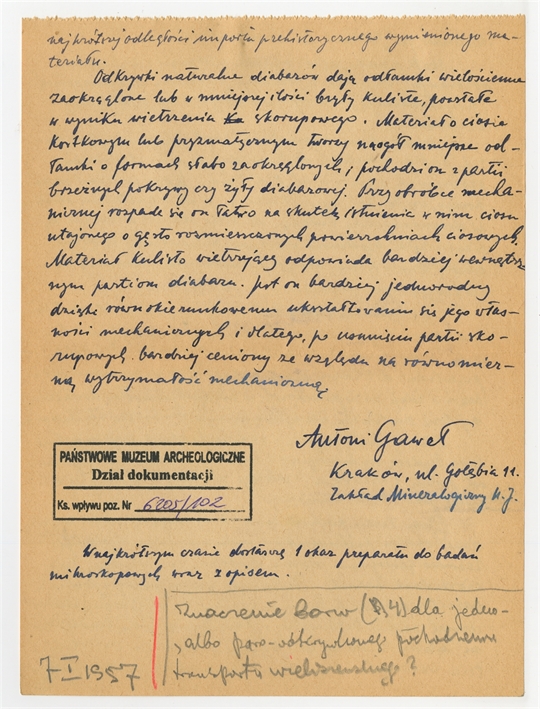 najkrótszej odległości importu prehistorycznego wymienionego ma-
teriału.
Odkrywki naturalne diabazów dają odłamki wielościenne
zaokrąglone lub w mniejszej ilości bryły kuliste, powstałe
w wyniku wietrzenia skorupowego. Materiał o ciosie
kostkowym lub pryzmatycznym tworzy naogół mniejsze od-
łamki o formach słabo zaokrąglonych i pochodzi on z partii
brzeżnych pokrywy czy żyły diabazowej. Przy obróbce mecha-
nicznej rozpada się on łatwo na skutek istnienia w nim ciosu
utajonego o gęsto rozmieszczonych powierzchniach ciosowych.
Materiał kulisto wietrzejący odpowiada bardziej wewnętrz-
nym partiom diabazu. Jest on bardziej jednorodny
dzięki równokierunkowemu ukształtowaniu się jego włas-
ności mechanicznych i dlatego, po usunięciu partii sko-
rupowych bardziej ceniony ze względu na równomier-
ną wytrzymałość mechaniczną.
Antoni Gaweł
Kraków, ul. Gołębia 11.
Zakład Mineralogiczny U.J.
PAŃSTWOWE MUZEUM ARCHEOLOGICZNE
Dział dokumentacji
Ks. wpływu poz. Nr 6205/102
W najkrótszym czasie dostarczę 1 okaz preparatu do badań
mikroskopowych wraz z opisem.
Znaczenie barw (4) dla jedno-
albo paro-odkrywkowego pochodzenia
transportu
7 I 1957